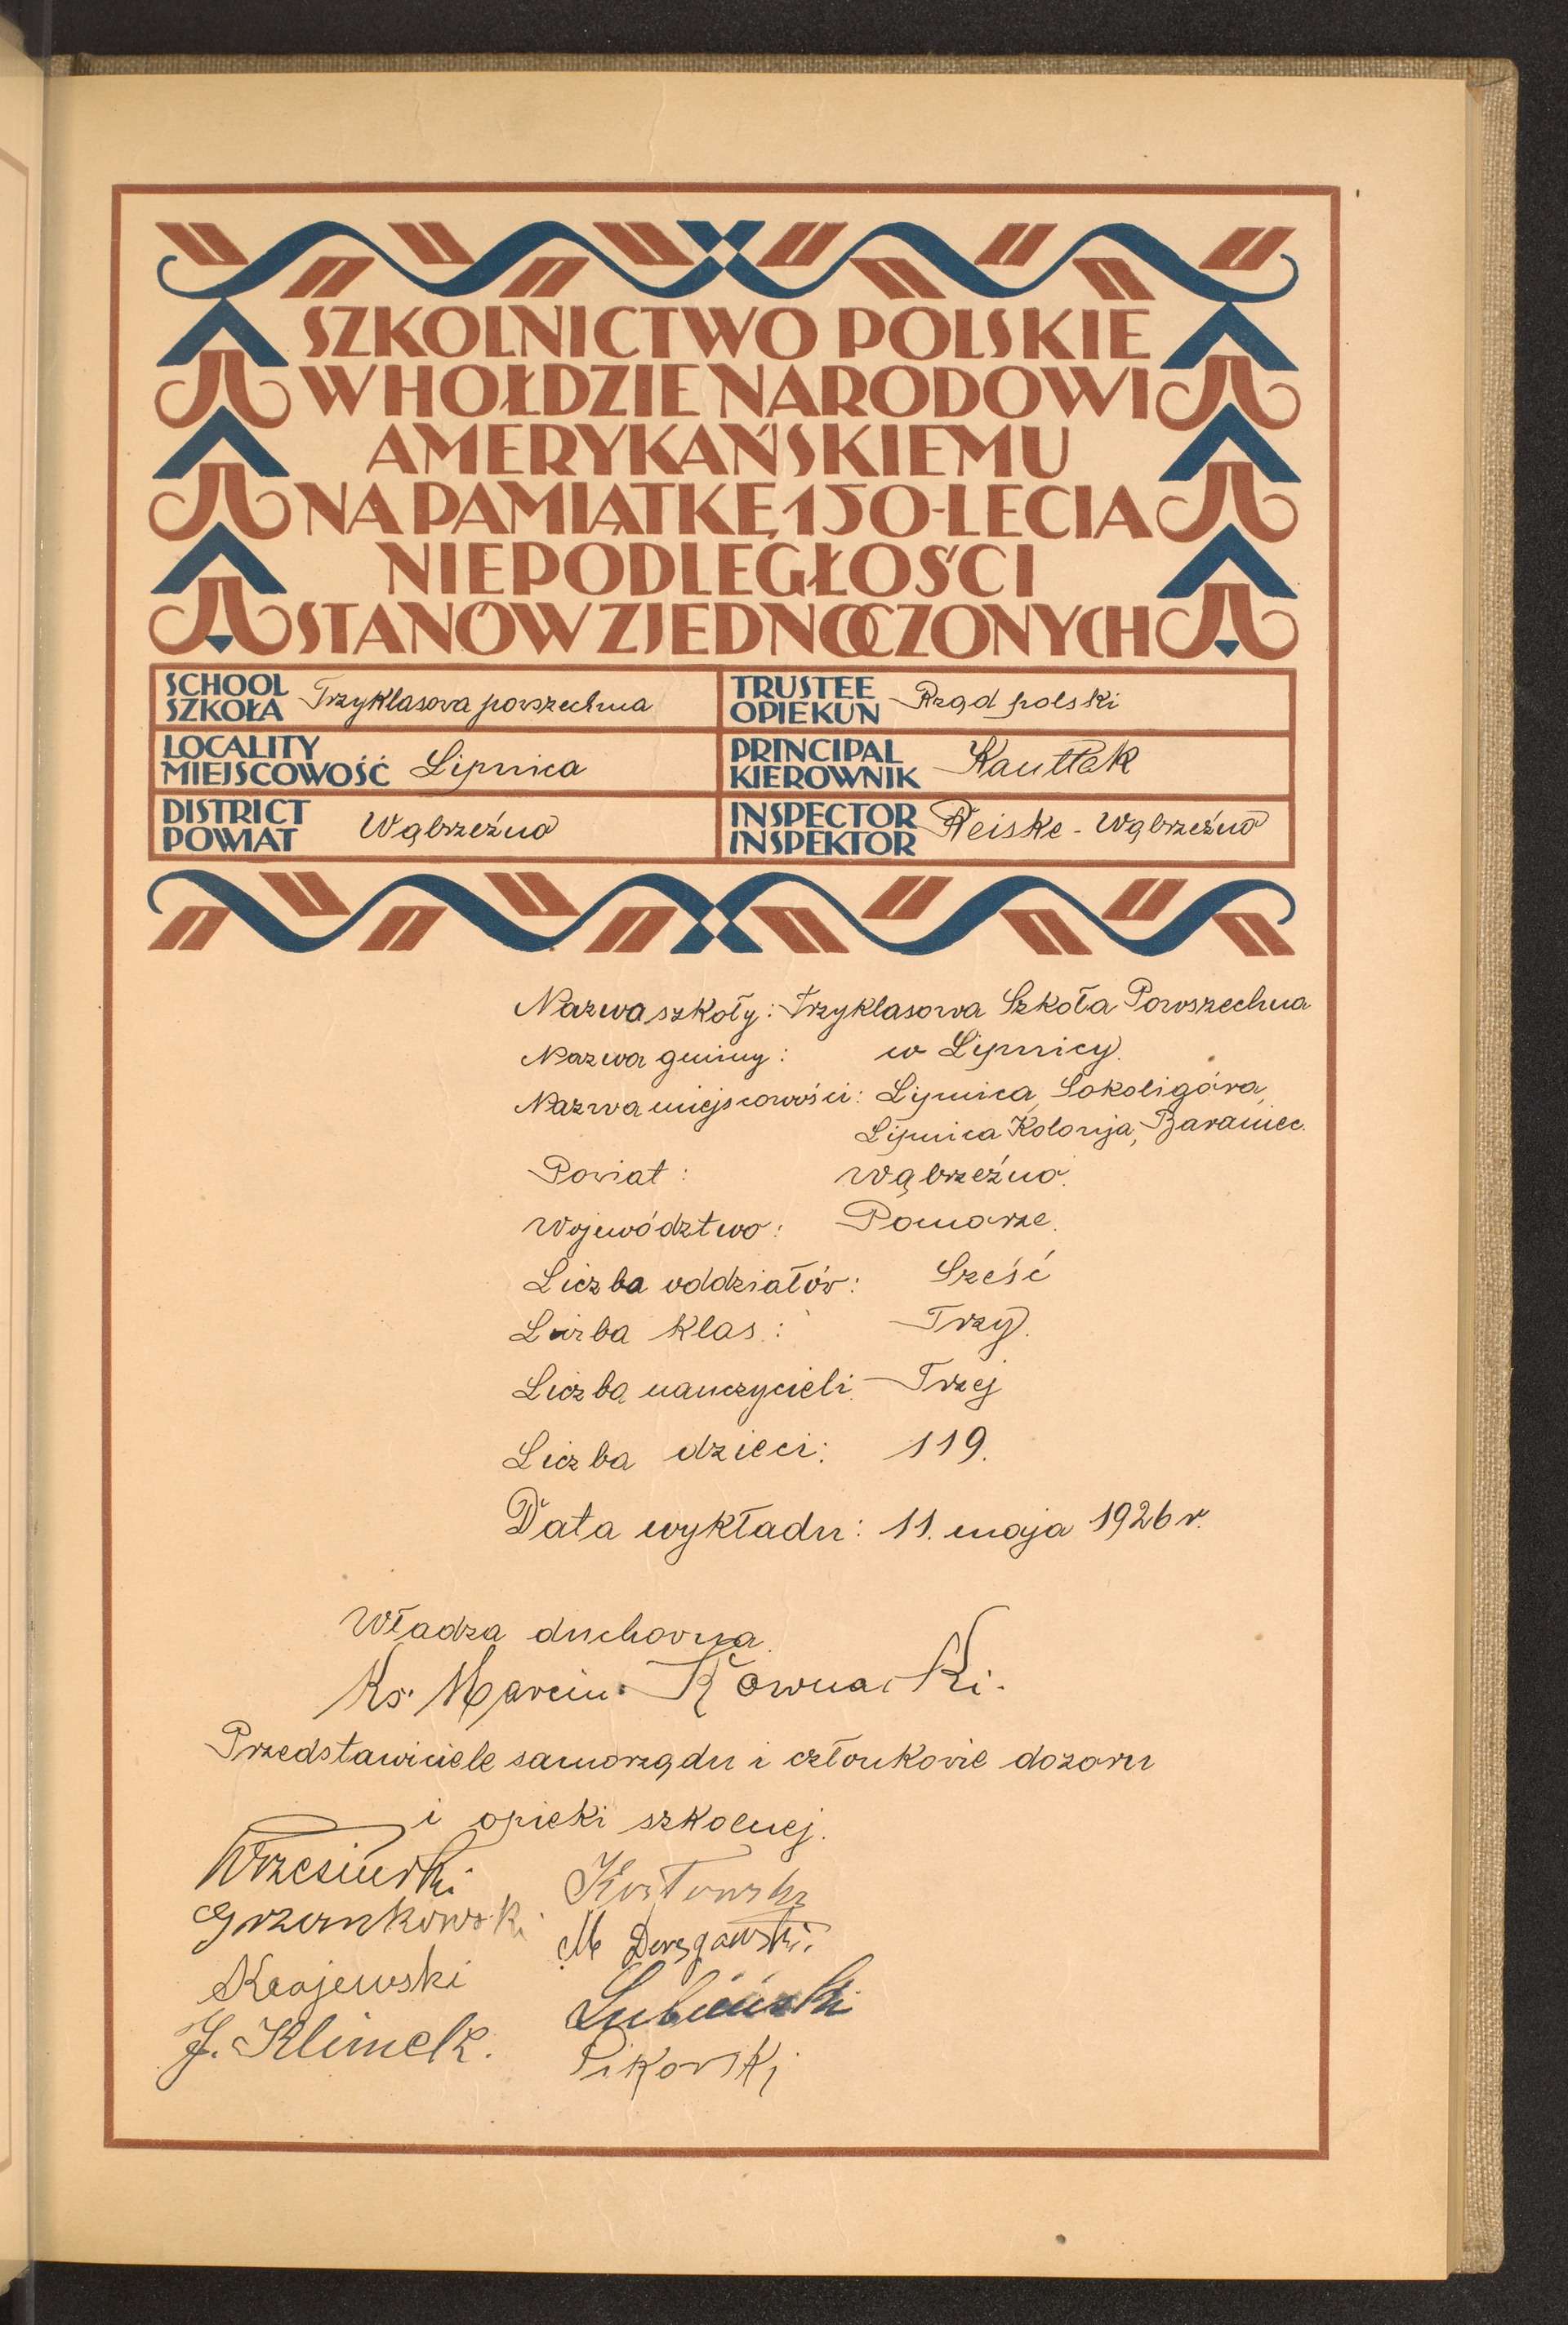 SZKOLNICTWO POLSKIE
W HOŁDZIE NARODOWI
AMERYKAŃSKIEMU
NA PAMIĄTKĘ 150-LECIA
NIEPODLEGŁOŚCI
STANÓW ZJEDNOCZONYCH
SCHOOL
SZKOŁA Trzyklasowa powszechna
TRUSTEE
OPIEKUN Rząd polski
LOCALITY
MIEJSCOWOŚĆ Lipnica
PRINCIPAL
KIEROWNIK Kautlak
DISTRICT
POWIAT Wąbrzeźno
INSPECTOR
INSPEKTOR Reiske - Wąbrzeźno
Nazwa szkoły: Trzyklasowa Szkoła Powszechna
Nazwa gminy: w Lipnicy.
Nazwa miejscowości: Lipnica, Sokoligóra,
Lipnica Kolonja, Baraniec.
Powiat: Wąbrzeźno.
Województwo: Pomorze.
Liczba oddziałów: Sześć
Liczba klas: Trzy.
Liczba nauczycieli Trzej
Liczba dzieci: 119.
Data wykładu: 11. maja 1926 r.
Władza duchowna.
Ks. Marcin Kownacki.
Przedstawiciele samorządu i członkowie dozoru
i opieki szkolnej.
Wrzesiński
Grzankowski
Krajewski
J. Klimek.
M
Lubiński
Pikorski